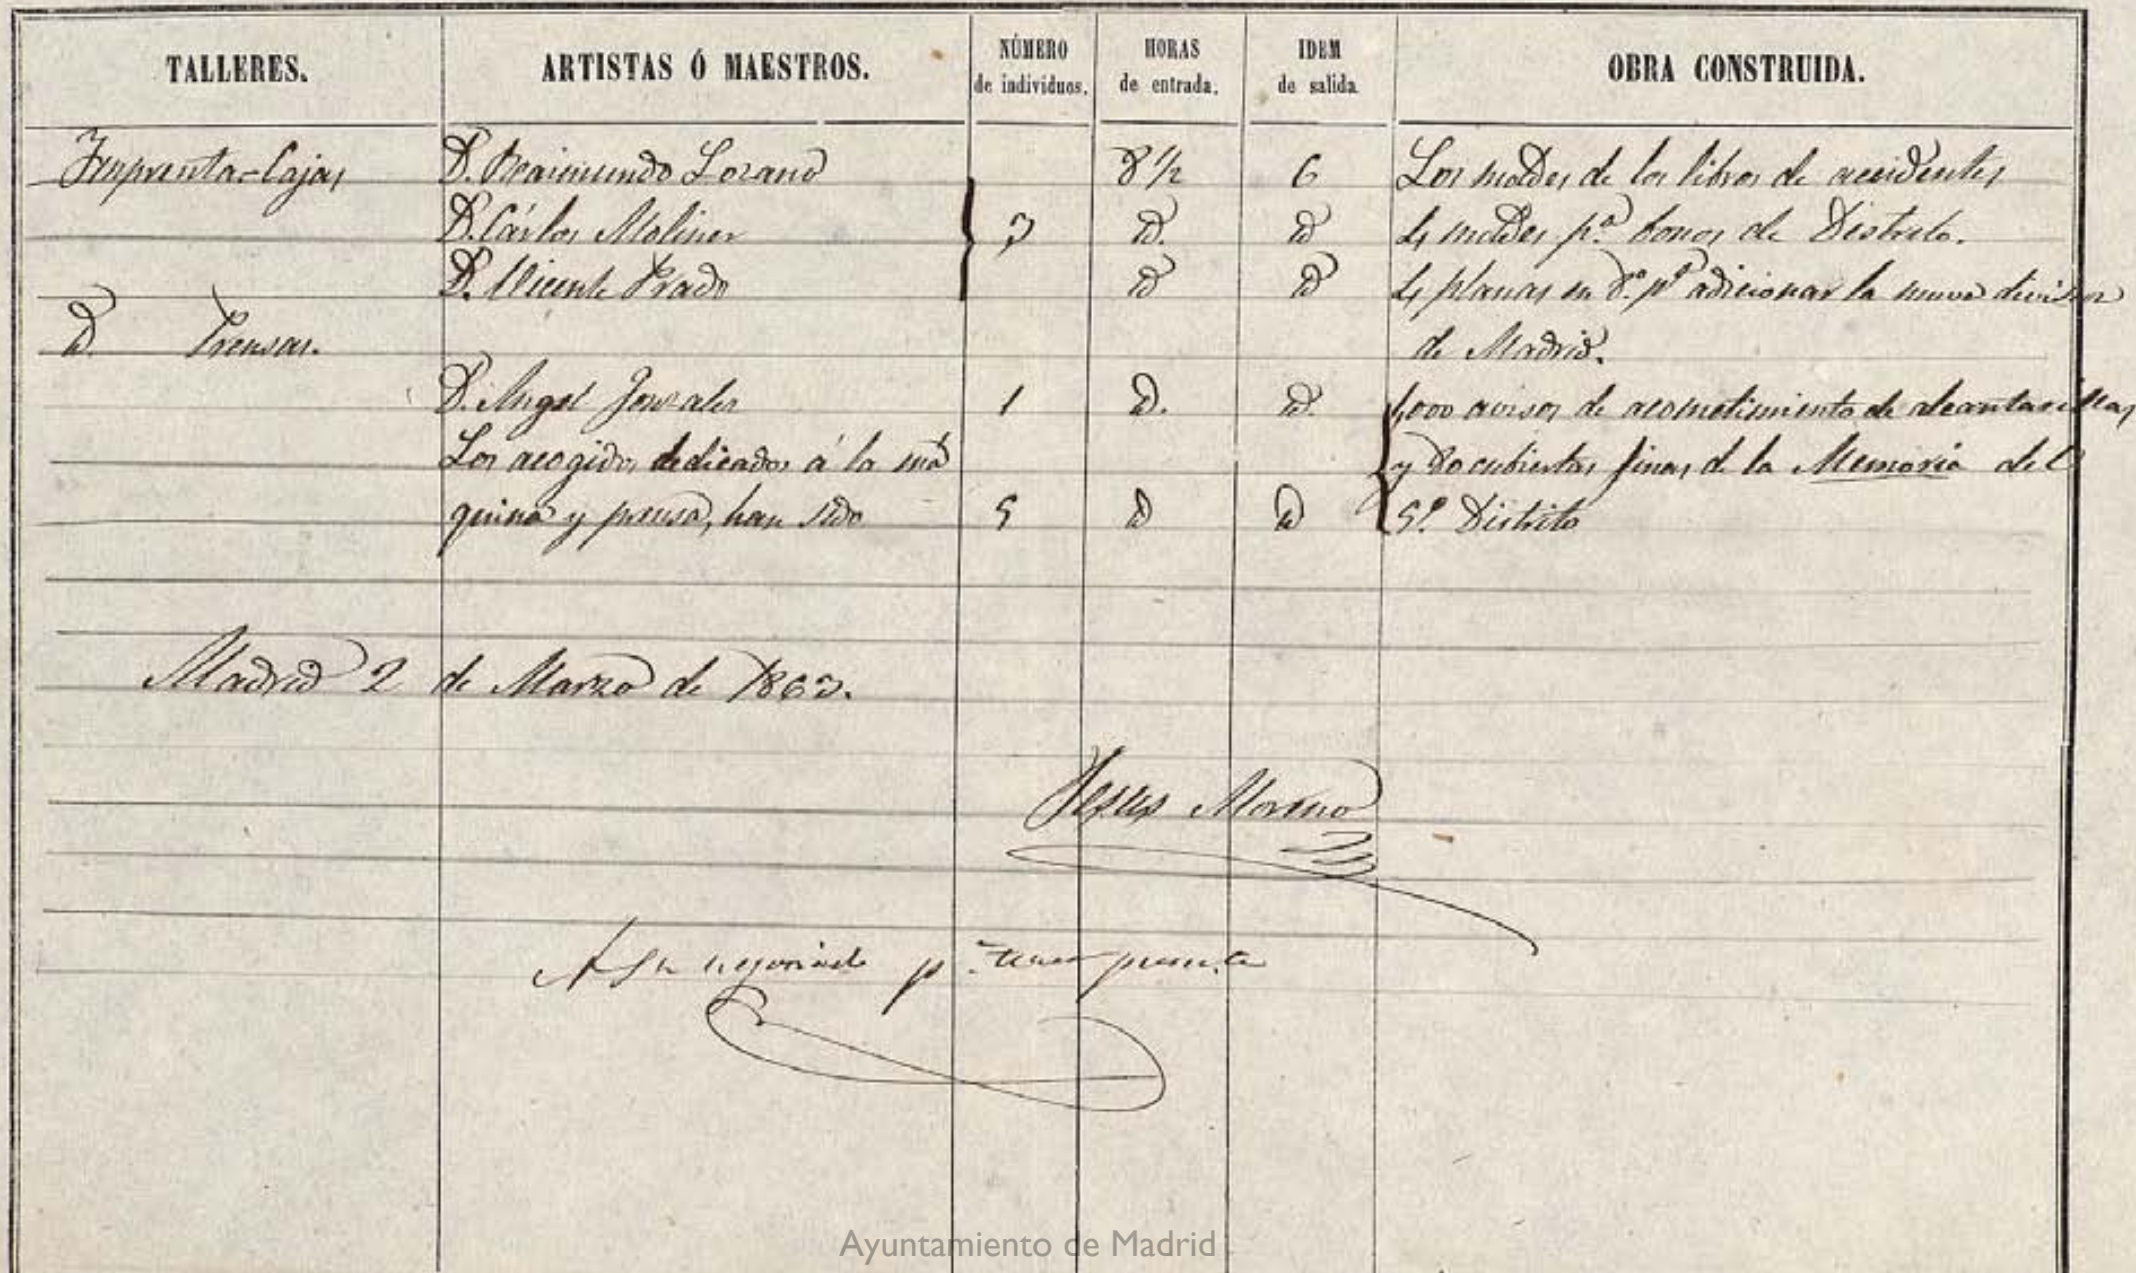 TALLERES. ARTISTAS Ó MAESTROS. NÚMERO de individuos. HORAS de entrada. IDEM de salida OBRA CONSTRUIDA.
Imprenta-Cajas D. Raimundo Lozano 8 1/2 6 Los moldes de los libros de accidentes
D. Cárlos Moliner 3 id. id Ls moldes pª bonos de Distrito.
D. Vicente Prado id id Ls planas en dº pª adicionar la nueva division
id. Prensas. de Madrid.
D. Angel Gonzalez 1 id. id. 1,000 avisos de acometimiento de alcantarillas
Los acogidos dedicados á la má y cubiertas finas de la Memoria del
quina y prensa, han sido 5 id id 5º Distrito
Madrid 2 de Marzo de 1863.
Jesus Moreno
A su negociado pª tener presente
Ayuntamiento de Madrid